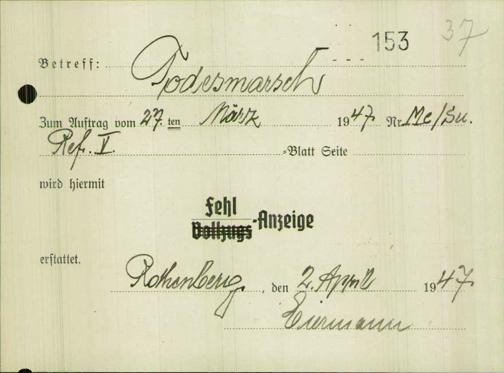 153 37
Betreff: Todesmarsch
Zum Auftrag vom 27.ten März 1947 Nr. Mc/Su.
Ref. V. -Blatt Seite
wird hiermit
Fehl
Vollzugs-Anzeige
erstattet.
Rothenberg, den 2. April 1947.
Eiermann